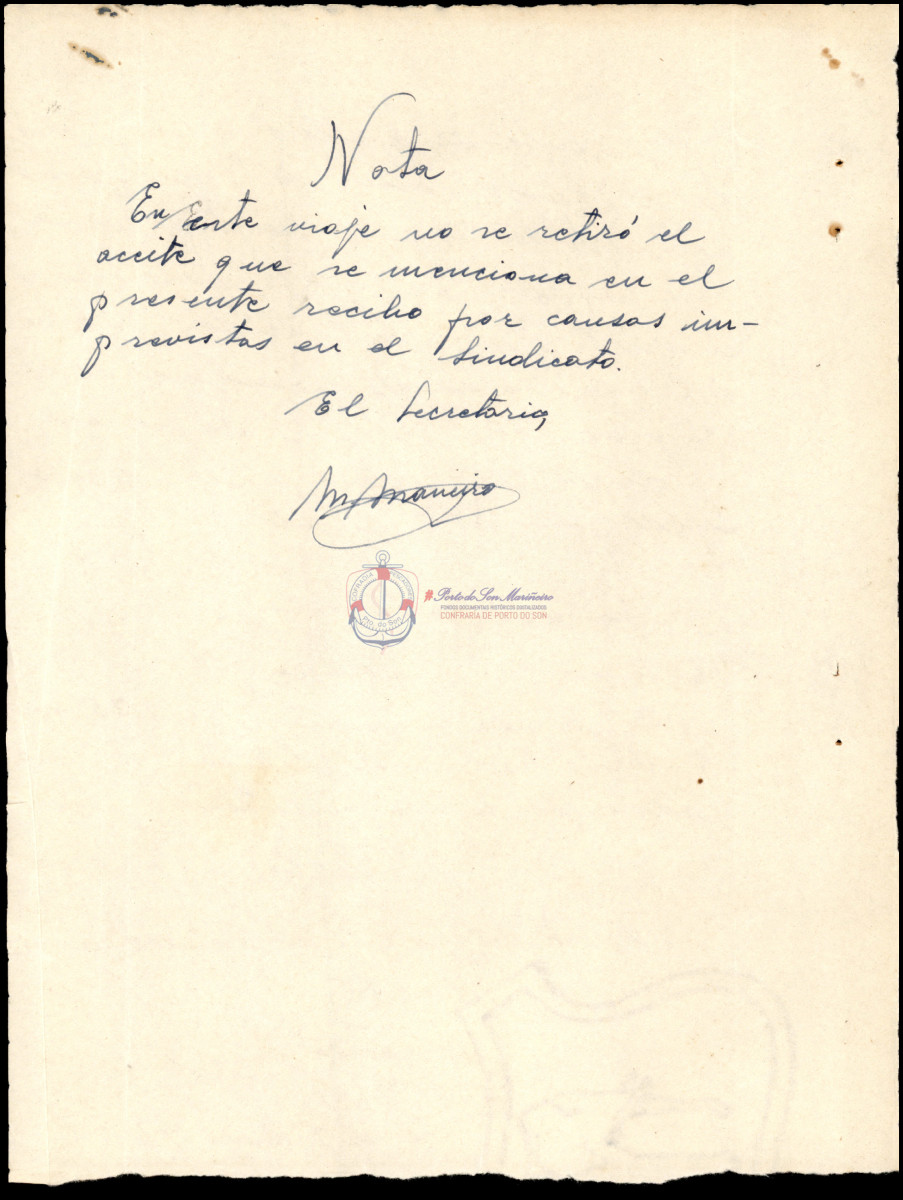 Nota
En Este viaje no se retiró el
aceite que se menciona en el
presente recibo por causas im-
previstas en el Sindicato.
El Secretario,
M. Maneiro
COFRADIA PESCADORES
Pto. do Son
# Porto do Son Mariñeiro
FONDOS DOCUMENTAIS HISTÓRICOS DIXITALIZADOS
CONFRARIA DE PORTO DO SON